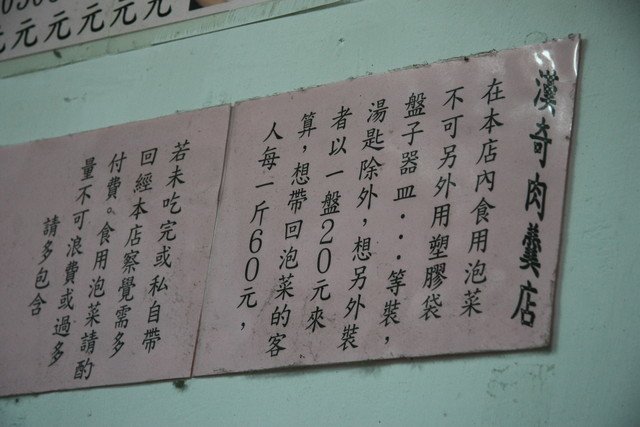 元元元元元元
漢奇肉羹店
在本店內食用泡菜
不可另外用塑膠袋
盤子器皿...等裝,
湯匙除外,想另外裝
者以一盤20元來
算,想帶回泡菜的客
人每一斤60元,
若未吃完或私自帶
回經本店察覺需多
付費。食用泡菜請酌
量不可浪費或過多
請多包含